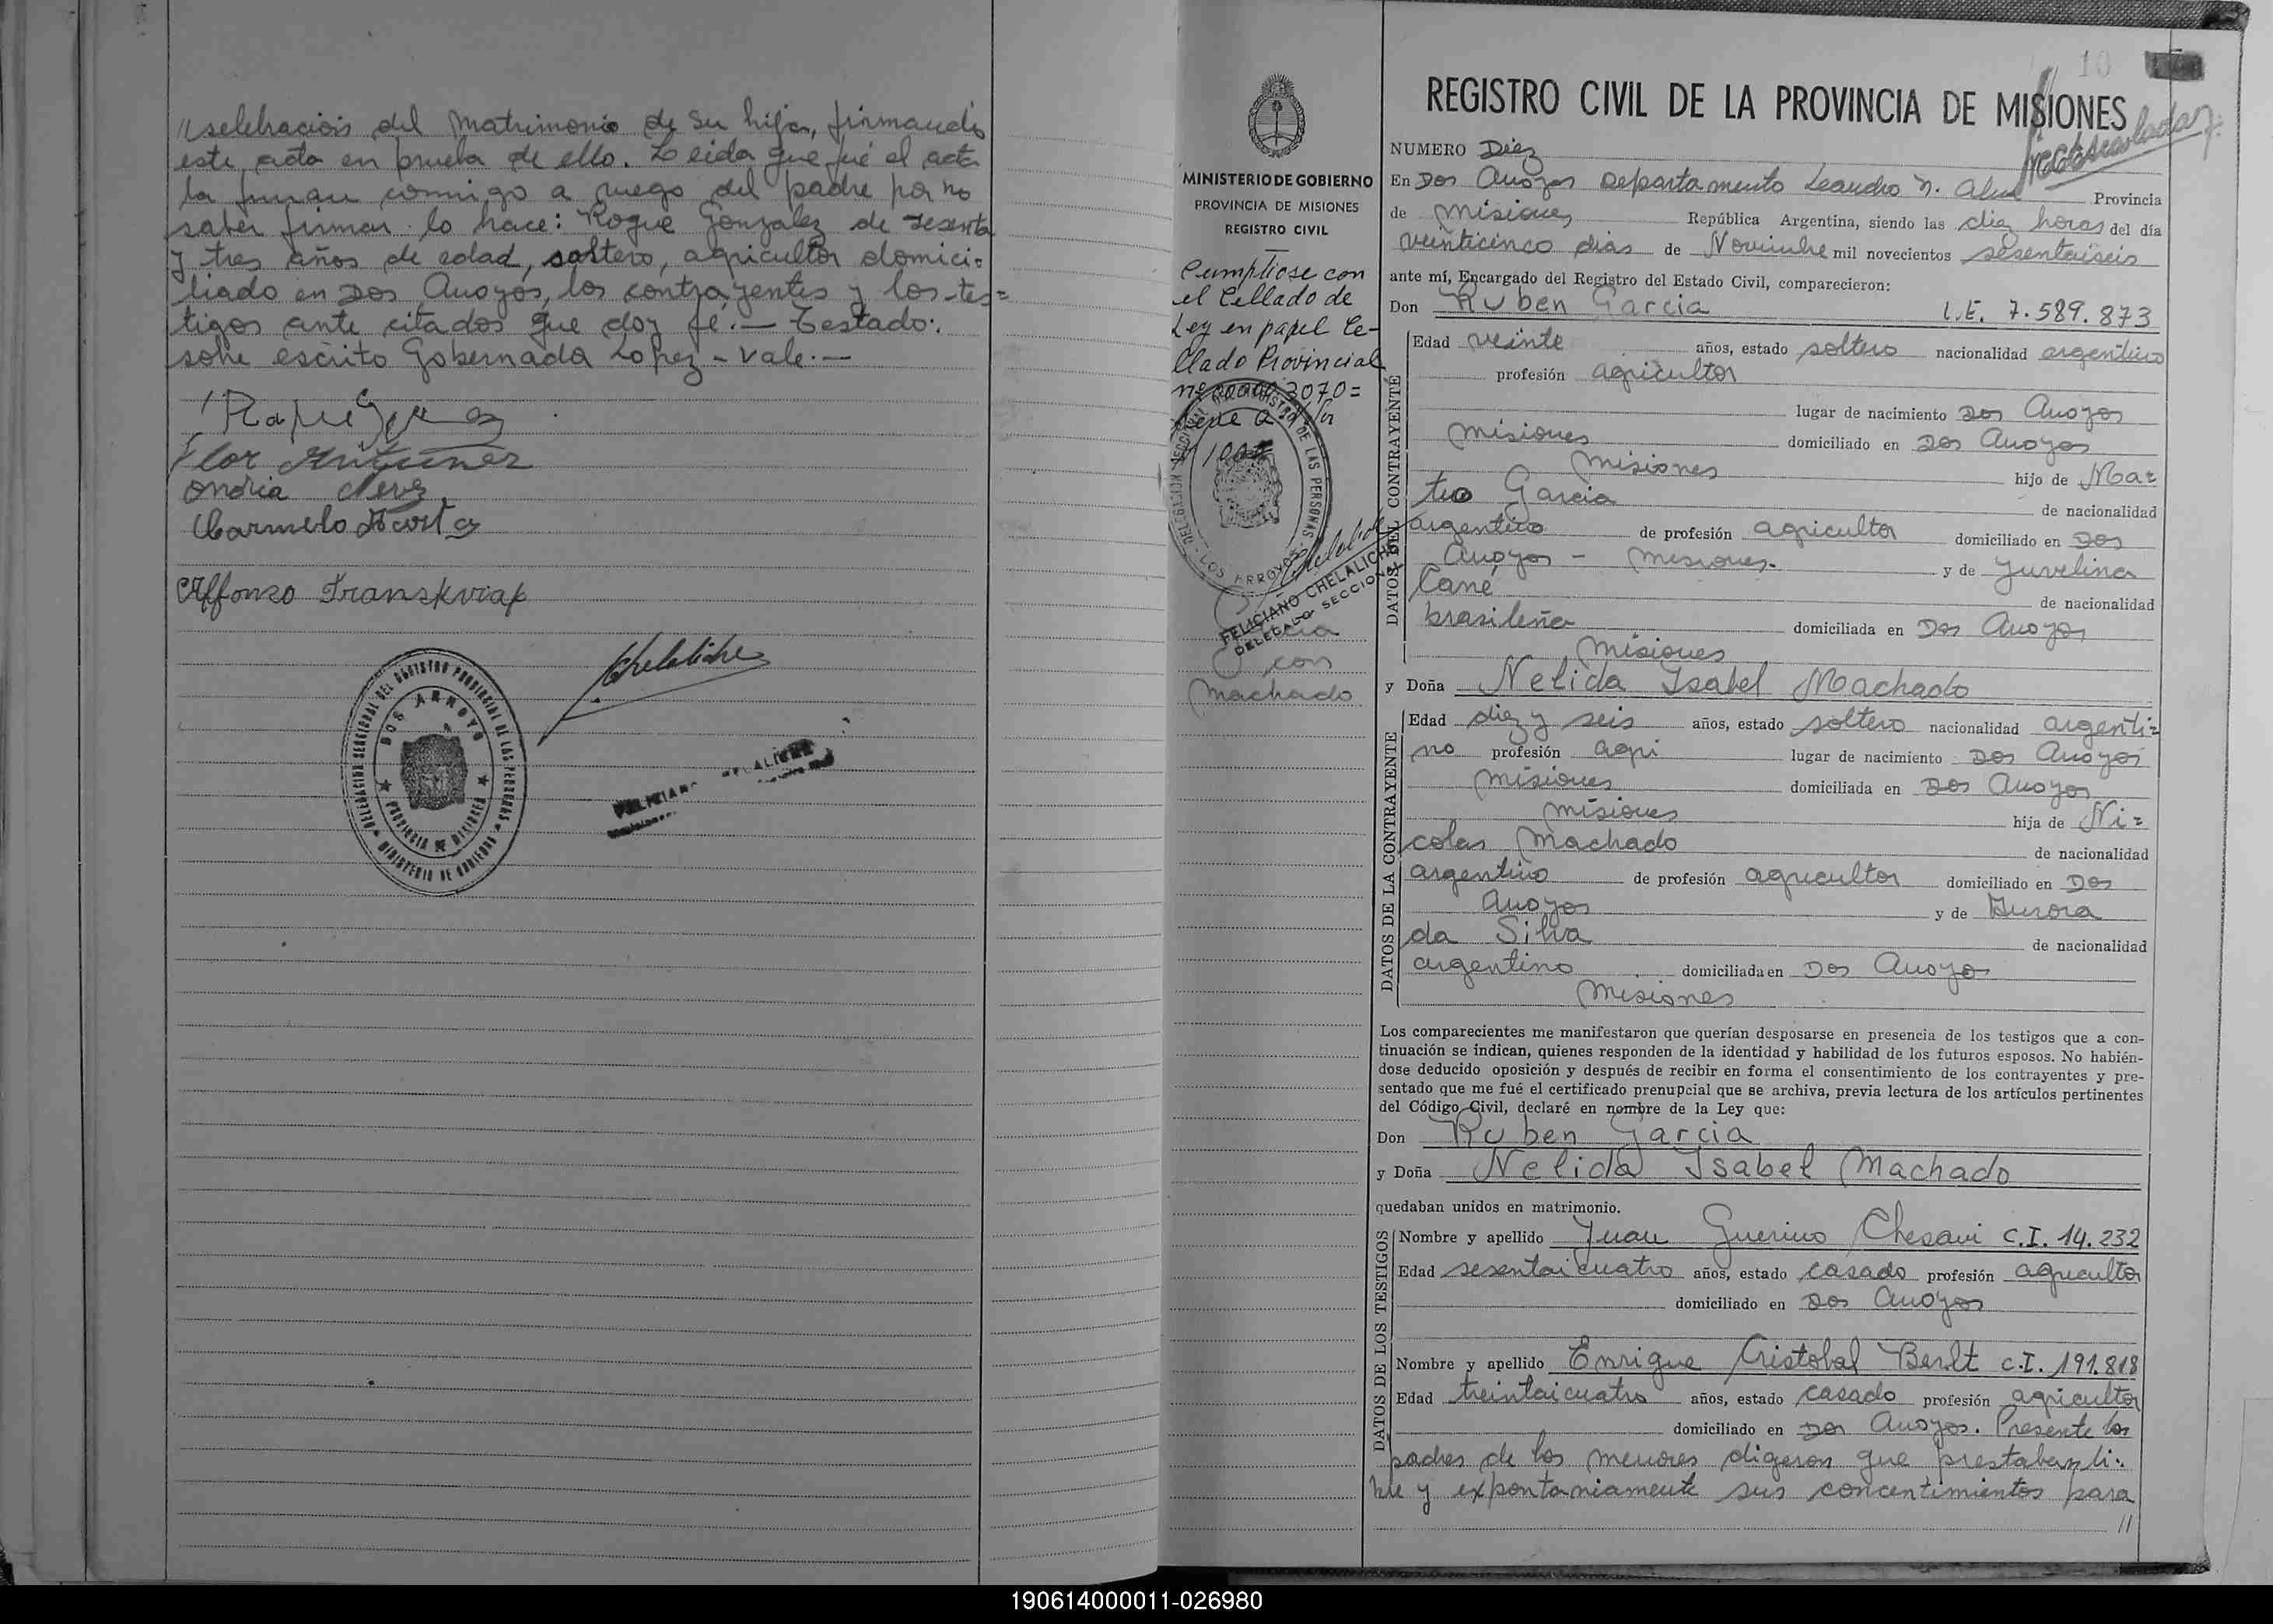 "selebracion del matrimonio de su hija, firmando
este acta en prueba de ello. Leida que fué el acta
la firman conmigo a ruego del padre por no
saber firmar lo hace: Roque Gonzalez de sesenta
y tres años de edad, soltero, agricultor domici=
liado en Dos Arroyos, los contrayentes y los tes=
tigos ante citados que doy fé.— Testado:
sobre escrito Gobernada Lopez - vale.—
Flor Antunez
Carmelo Acosta
Alfonzo
Chelaliche
DELEGACION SECCIONAL DEL REGISTRO PROVINCIAL DE LAS PERSONAS
DOS ARROYOS
PROVINCIA DE MISIONES
MINISTERIO DE GOBIERNO
MINISTERIO DE GOBIERNO
PROVINCIA DE MISIONES
REGISTRO CIVIL
Cumpliose con
el Cellado de
Ley en papel Ce-
llado Provincial
FELICIANO CHELALICHE
DELEGADO SECCIONAL
Garcia
con
Machado
10
REGISTRO CIVIL DE LA PROVINCIA DE MISIONES
NUMERO Diez
En Dos Arroyos Departamento Leandro N. Alem Provincia
de Misiones República Argentina, siendo las diez horas del día
veinticinco dias de Noviembre mil novecientos sesentaiseis
ante mí, Encargado del Registro del Estado Civil, comparecieron:
Don Ruben Garcia L.E. 7.589.873
DATOS DEL CONTRAYENTE
Edad veinte años, estado soltero nacionalidad argentino
profesión agricultor
lugar de nacimiento Dos Arroyos
Misiones domiciliado en Dos Arroyos
Misiones hijo de Mar=
tio Garcia de nacionalidad
argentino de profesión agricultor domiciliado en Dos
Arroyos - Misiones. y de Juvelina
Cané de nacionalidad
brasileña domiciliada en Dos Arroyos
Misiones
y Doña Nelida Isabel Machado
DATOS DE LA CONTRAYENTE
Edad diez y seis años, estado soltero nacionalidad argenti=
no profesión agri lugar de nacimiento Dos Arroyos
Misiones domiciliada en Dos Arroyos
Misiones hija de Ni=
colas Machado de nacionalidad
argentino de profesión agricultor domiciliado en Dos
Arroyos y de Aurora
da Silva de nacionalidad
argentino domiciliada en Dos Arroyos
Misiones
Los comparecientes me manifestaron que querían desposarse en presencia de los testigos que a con-
tinuación se indican, quienes responden de la identidad y habilidad de los futuros esposos. No habién-
dose deducido oposición y después de recibir en forma el consentimiento de los contrayentes y pre-
sentado que me fué el certificado prenupcial que se archiva, previa lectura de los artículos pertinentes
del Código Civil, declaré en nombre de la Ley que:
Don Ruben Garcia
y Doña Nelida Isabel Machado
quedaban unidos en matrimonio.
DATOS DE LOS TESTIGOS
Nombre y apellido Juan Guerino Chesani C.I. 14.232
Edad sesentaicuatro años, estado casado profesión agricultor
domiciliado en Dos Arroyos
Nombre y apellido Enrique Cristobal Berlt C.I. 191.818
Edad treintaicuatro años, estado casado profesión agricultor
domiciliado en Dos Arroyos. Presente los
padres de los menores digeron que prestaban li=
bre y expontaniamente sus concentimientos para
//
190614000011-026980